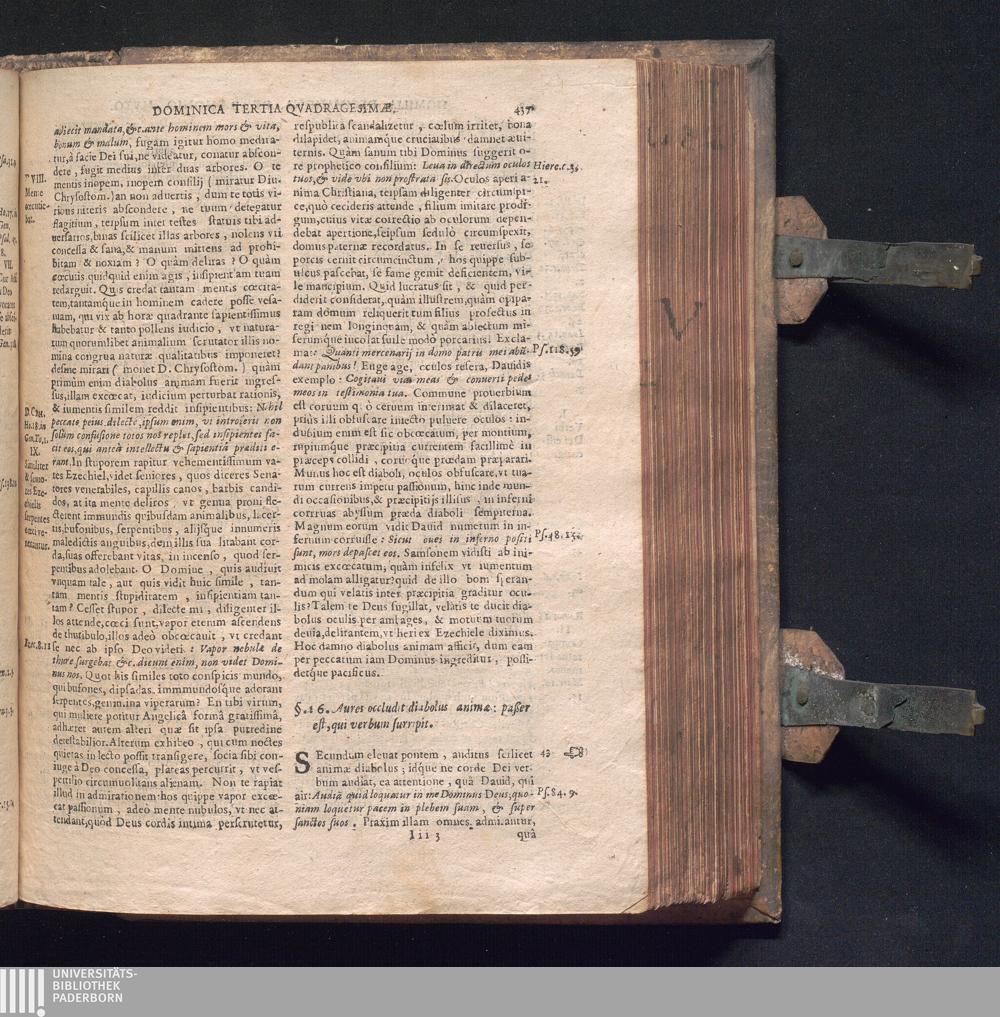 DOMINICA TERTIA QVADRAGESIMÆ. 437
adiecit mandata, &c. ante hominem mors & vita,
bonum & malum, fugam igitur homo medita-
tur, à facie Dei sui, ne videatur, conatur abscon-
dere, fugit medius inter duas arbores. O te
mentis inopem, inopem consilij (miratur Diu.
Chrysostom.) an non advertis, dum te totis vi-
ribus niteris abscondere, ne tuum detegatur
flagitium, teipsum inter testes statuis tibi ad-
versarios, binas scilicet illas arbores, nolens vti
concessa & sana, & manum mittens ad prohi-
bitam & noxiam? O quàm deliras? O quàm
cœcutis quidquid enim agis, insipientiam tuam
redarguit. Quis credat tantam mentis cœcita-
tem, tantamque in hominem cadere posse vesa-
niam, qui vix ab horæ quadrante sapientissimus
habebatur & tanto pollens iudicio, vt natura-
rum quorumlibet animalium scrutator illis no-
mina congrua naturæ qualitatibus imponeret?
desine mirari (monet D. Chrysostom.) quàm
primùm enim diabolus animam fuerit ingres-
sus, illam excœcat, iudicium perturbat rationis,
& iumentis similem reddit insipientibus: Nihil
peccato peius, dilecte, ipsum enim, vt introierit non
solùm confusione totos nos replet, sed insipientes fa-
cit eos, qui anteà intellectu & sapientiâ præditi e-
rant. In stuporem rapitur vehementissimum va-
tes Ezechiel, videt seniores, quos diceres Sena-
tores venerabiles, capillis canos, barbis candi-
dos, at ita mente deliros, vt genua proni fle-
cterent immundis quibusdam animalibus, lacer-
tis, bufonibus, serpentibus, alijsque innumeris
maledictis anguibus, dem illis sua litabant cor-
da, suas offerebant vitas, in incenso, quod ser-
pentibus adolebant. O Domine, quis audiuit
vnquam tale, aut quis vidit huic simile, tan-
tam mentis stupiditatem, insipientiam tan-
tam? Cesset stupor, dilecte mi, diligenter il-
los attende, cœci sunt, vapor etenim ascendens
de thuribulo, illos adeò obcœcauit, vt credant
se nec ab ipso Deo videri: Vapor nebulæ de
thure surgebat &c. dicunt enim, non videt Domi-
nus nos. Quot his similes toto conspicis mundo,
qui bufones, dipsadas, immundosque adorant
serpentes, genimina viperarum? En tibi virum,
qui muliere potitur Angelicâ formâ gratissimâ,
adhæret autem alteri quæ sit ipsa putredine
detestabilior. Alterum exhibeo, qui cum noctes
quietas in lecto possit transigere, socia sibi con-
iuge à Deo concessa, plateas percurrit, vt ves-
pertilio circumuolitans alienam. Non te rapiat
illud in admirationem: hos quippe vapor excœ-
cat passionum, adeò mente nubulos, vt nec at-
tendant, quòd Deus cordis intima perscrutetur,
VIII.
D. Chrs.
Ho.18.in
Gen. To.1.
IX.
Similiter
Ezec.8.11
respublica scandalizetur, cœlum irritet, bona
dilapidet, animamque cruciatibus damnet æui-
ternis. Quàm sanum tibi Dominus suggerit o-
re prophetico consilium: Leua in directum oculos
tuos, & vide vbi non prostrata sis. Oculos aperi a-
nima Christiana, teipsam diligenter circumspi-
ce, quò cecideris attende, filium imitare prodi-
gum, cuius vitæ correctio ab oculorum depen-
debat apertione, seipsum sedulò circumspexit,
domus paternæ recordatus. In se reuersus, se
porcis cernit circumcinctum, hos quippe sub-
ulcus pascebat, se fame gemit deficientem, vi-
le mancipium. Quid lucratus sit, & quid per-
diderit considerat, quàm illustrem, quàm opipa-
ram domum reliquerit tum filius profectus in
regionem longinquam, & quàm abiectum mi-
serumque incolat suile modò porcarius: Excla-
mat: Quanti mercenarij in domo patris mei abũ-
dant panibus! Euge age, oculos resera, Dauidis
exemplo: Cogitaui vias meas & conuerti pedes
meos in testimonia tua. Commune prouerbium
est coruum quò ceruum interimat & dilaceret,
priùs illi obfuscare iniecto puluere oculos: in-
dubium enim est sic obcœcatum, per montium,
rupiumque præcipitia currentem facillimè in
præceps collidi, coruoque prædam præparari.
Munus hoc est diaboli, oculos obfuscare, vt tua-
rum currens impetu passionum, hinc inde mun-
di occasionibus, & præcipitijs illisus, in inferni
corruas abyssum præda diaboli sempiterna.
Magnum eorum vidit Dauid numerum in in-
fernum corruisse: Sicut oues in inferno positi
sunt, mors depascet eos. Samsonem vidisti ab ini-
micis excœcatum, quàm infelix vt iumentum
ad molam alligatur? quid de illo boni speran-
dum qui velatis inter præcipitia graditur ocu-
lis? Talem te Deus sugillat, velatis te ducit dia-
bolus oculis per ambages, & motuum tuorum
deuia, delirantem, vt heri ex Ezechiele diximus.
Hoc damno diabolus animam afficis, dum eam
per peccatum iam Dominus ingreditur, possi-
detque pacificus.
Hiere.c.3.
21.
Ps.118.59
Ps.48.15.
§.16. Aures occludit diabolus animæ: passer
est, qui verbum surripit.
SEcundum eleuat pontem, auditus scilicet
animæ diabolus; idque ne corde Dei ver-
bum audiat, ea attentione, quâ Dauid, qui
ait: Audiã quid loquatur in me Dominus Deus, quo-
niam loquetur pacem in plebem suam, & super
sanctos suos. Praxim illam omnes admirantur,
43
Ps.84.9.
Iii 3 quâ
V
UNIVERSITÄTS-
BIBLIOTHEK
PADERBORN